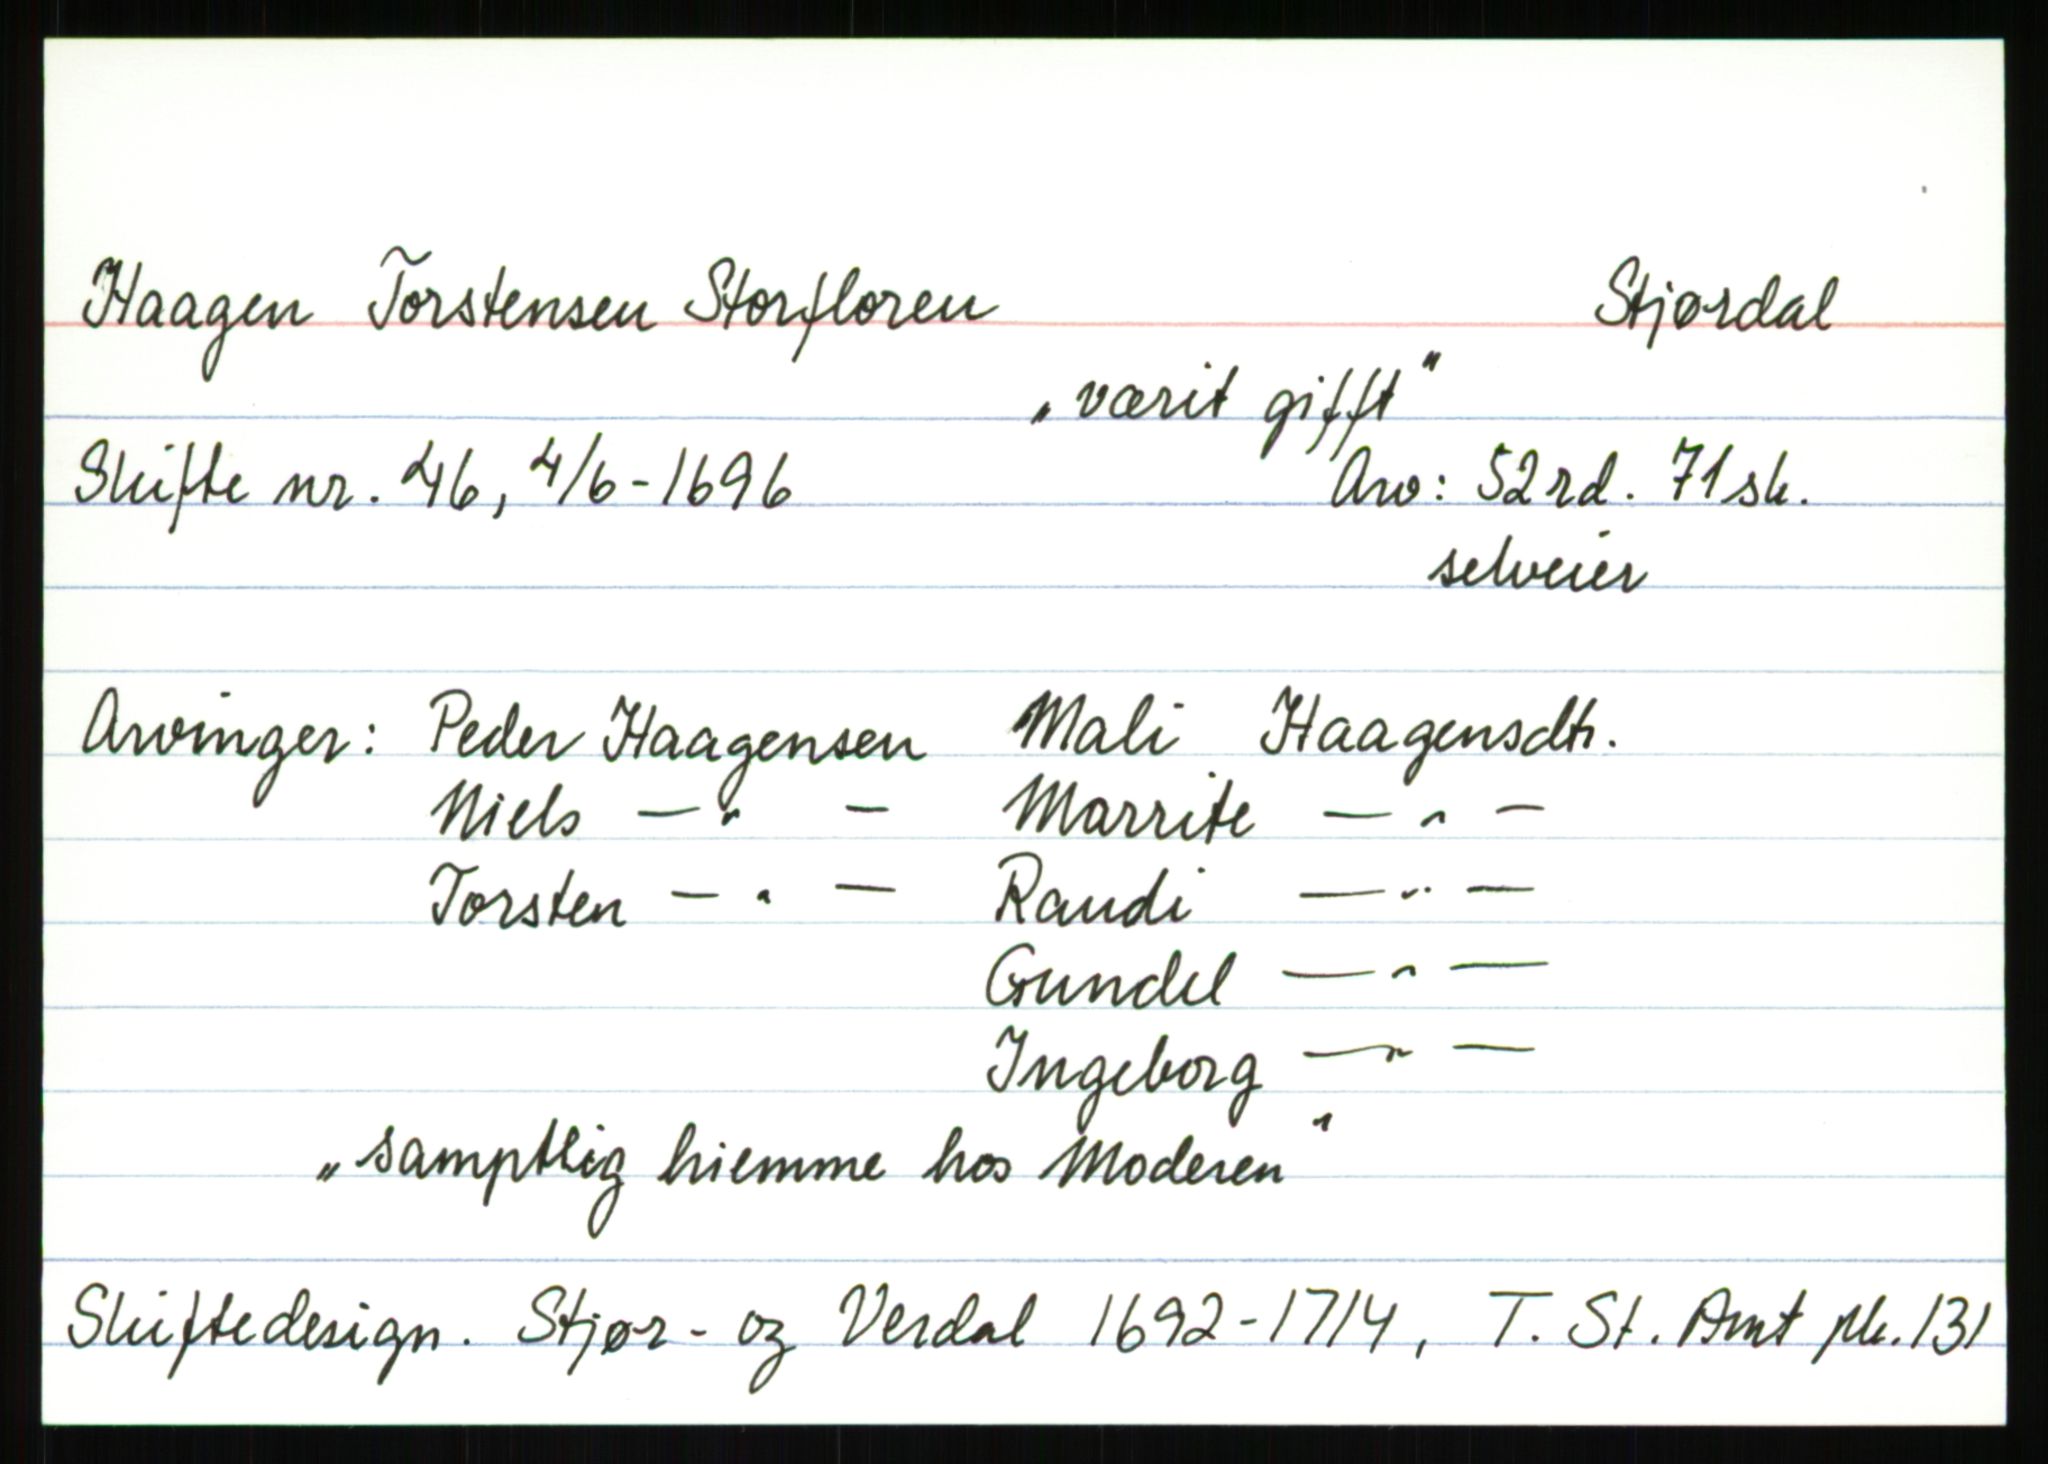 Haagen Torstensen Storfloren Stjørdal
„værit gifft"
Skifte nr. 46, 4/6-1696 Arv: 52 rd. 71 sk.
selveier
Arvinger: Peder Haagensen Mali Haagensdtr.
Niels — " — Marrite — " —
Torsten — " — Randi — " —
Gundel — " —
Ingeborg — " —
„samptlig hiemme hos Moderen"
Skiftedesign. Stjør- og Verdal 1692-1714, T. St. Amt pk. 131